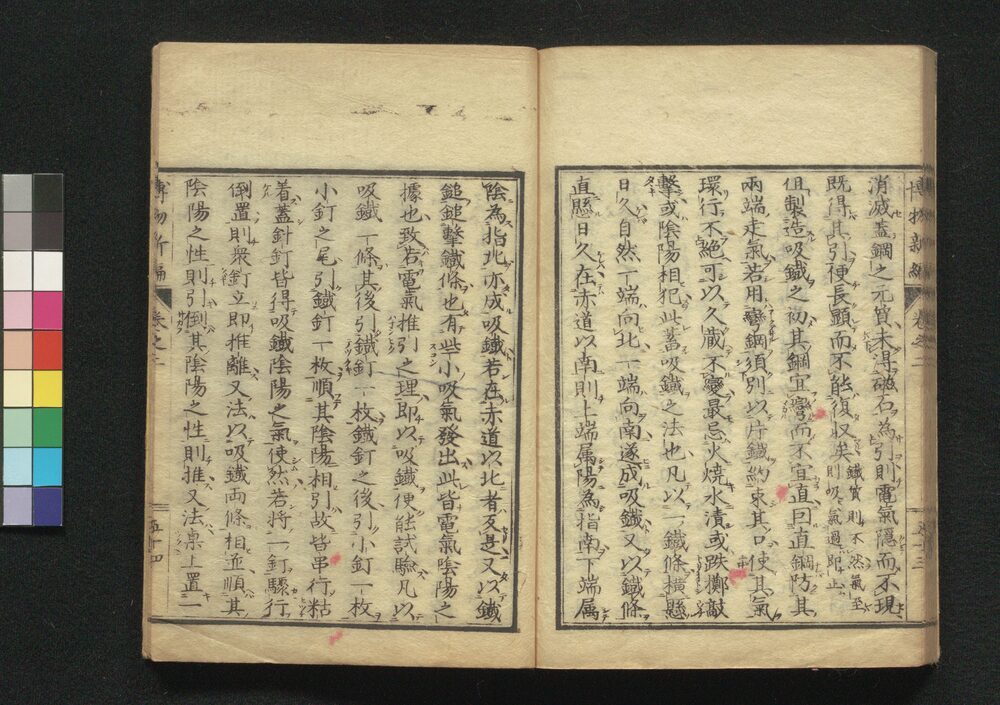 消滅蓋鋼之元質未得磁石為引則電氣隱而不現
既得其引便長顕而不能復収矣鐵質則不然氣至則吸氣過即止
但製造吸鐵之初其鋼宜彎而不宜直回直鋼防其
兩端走氣若用彎鋼須別以片鐵約束其口使其氣
環行不絶可以久蔵不變最忌火燒水漬或跌擲敲
擊或陰陽相犯此蓋吸鐵之法也凡以一鐵條横懸
日久自然一端向北一端向南遂成吸鐵又以鐵條
直懸日久在赤道以南則上端属陽為指南下端属
博物新編 卷之二 五十三
陰為指北亦成吸鐵若在赤道以北者反是又以鐵
鎚鎚擊鐵條也有些小吸氣發出此皆電氣陰陽之
據也致若電氣推引之理即以吸鐵便能試驗凡以
吸鐵一條其後引鐵釘一枚鐵釘之後引小釘一枚
小釘之尾引鐵針一枚順其陰陽相引故皆串行粘
着蓋針釘皆得吸鐵陰陽之氣使然若將一釘驟行
倒置則衆釘立即推離又法以吸鐵両條相並順其
陰陽之性則引倒其陰陽之性則推又法桌上置一
博物新編 卷之二 五十四